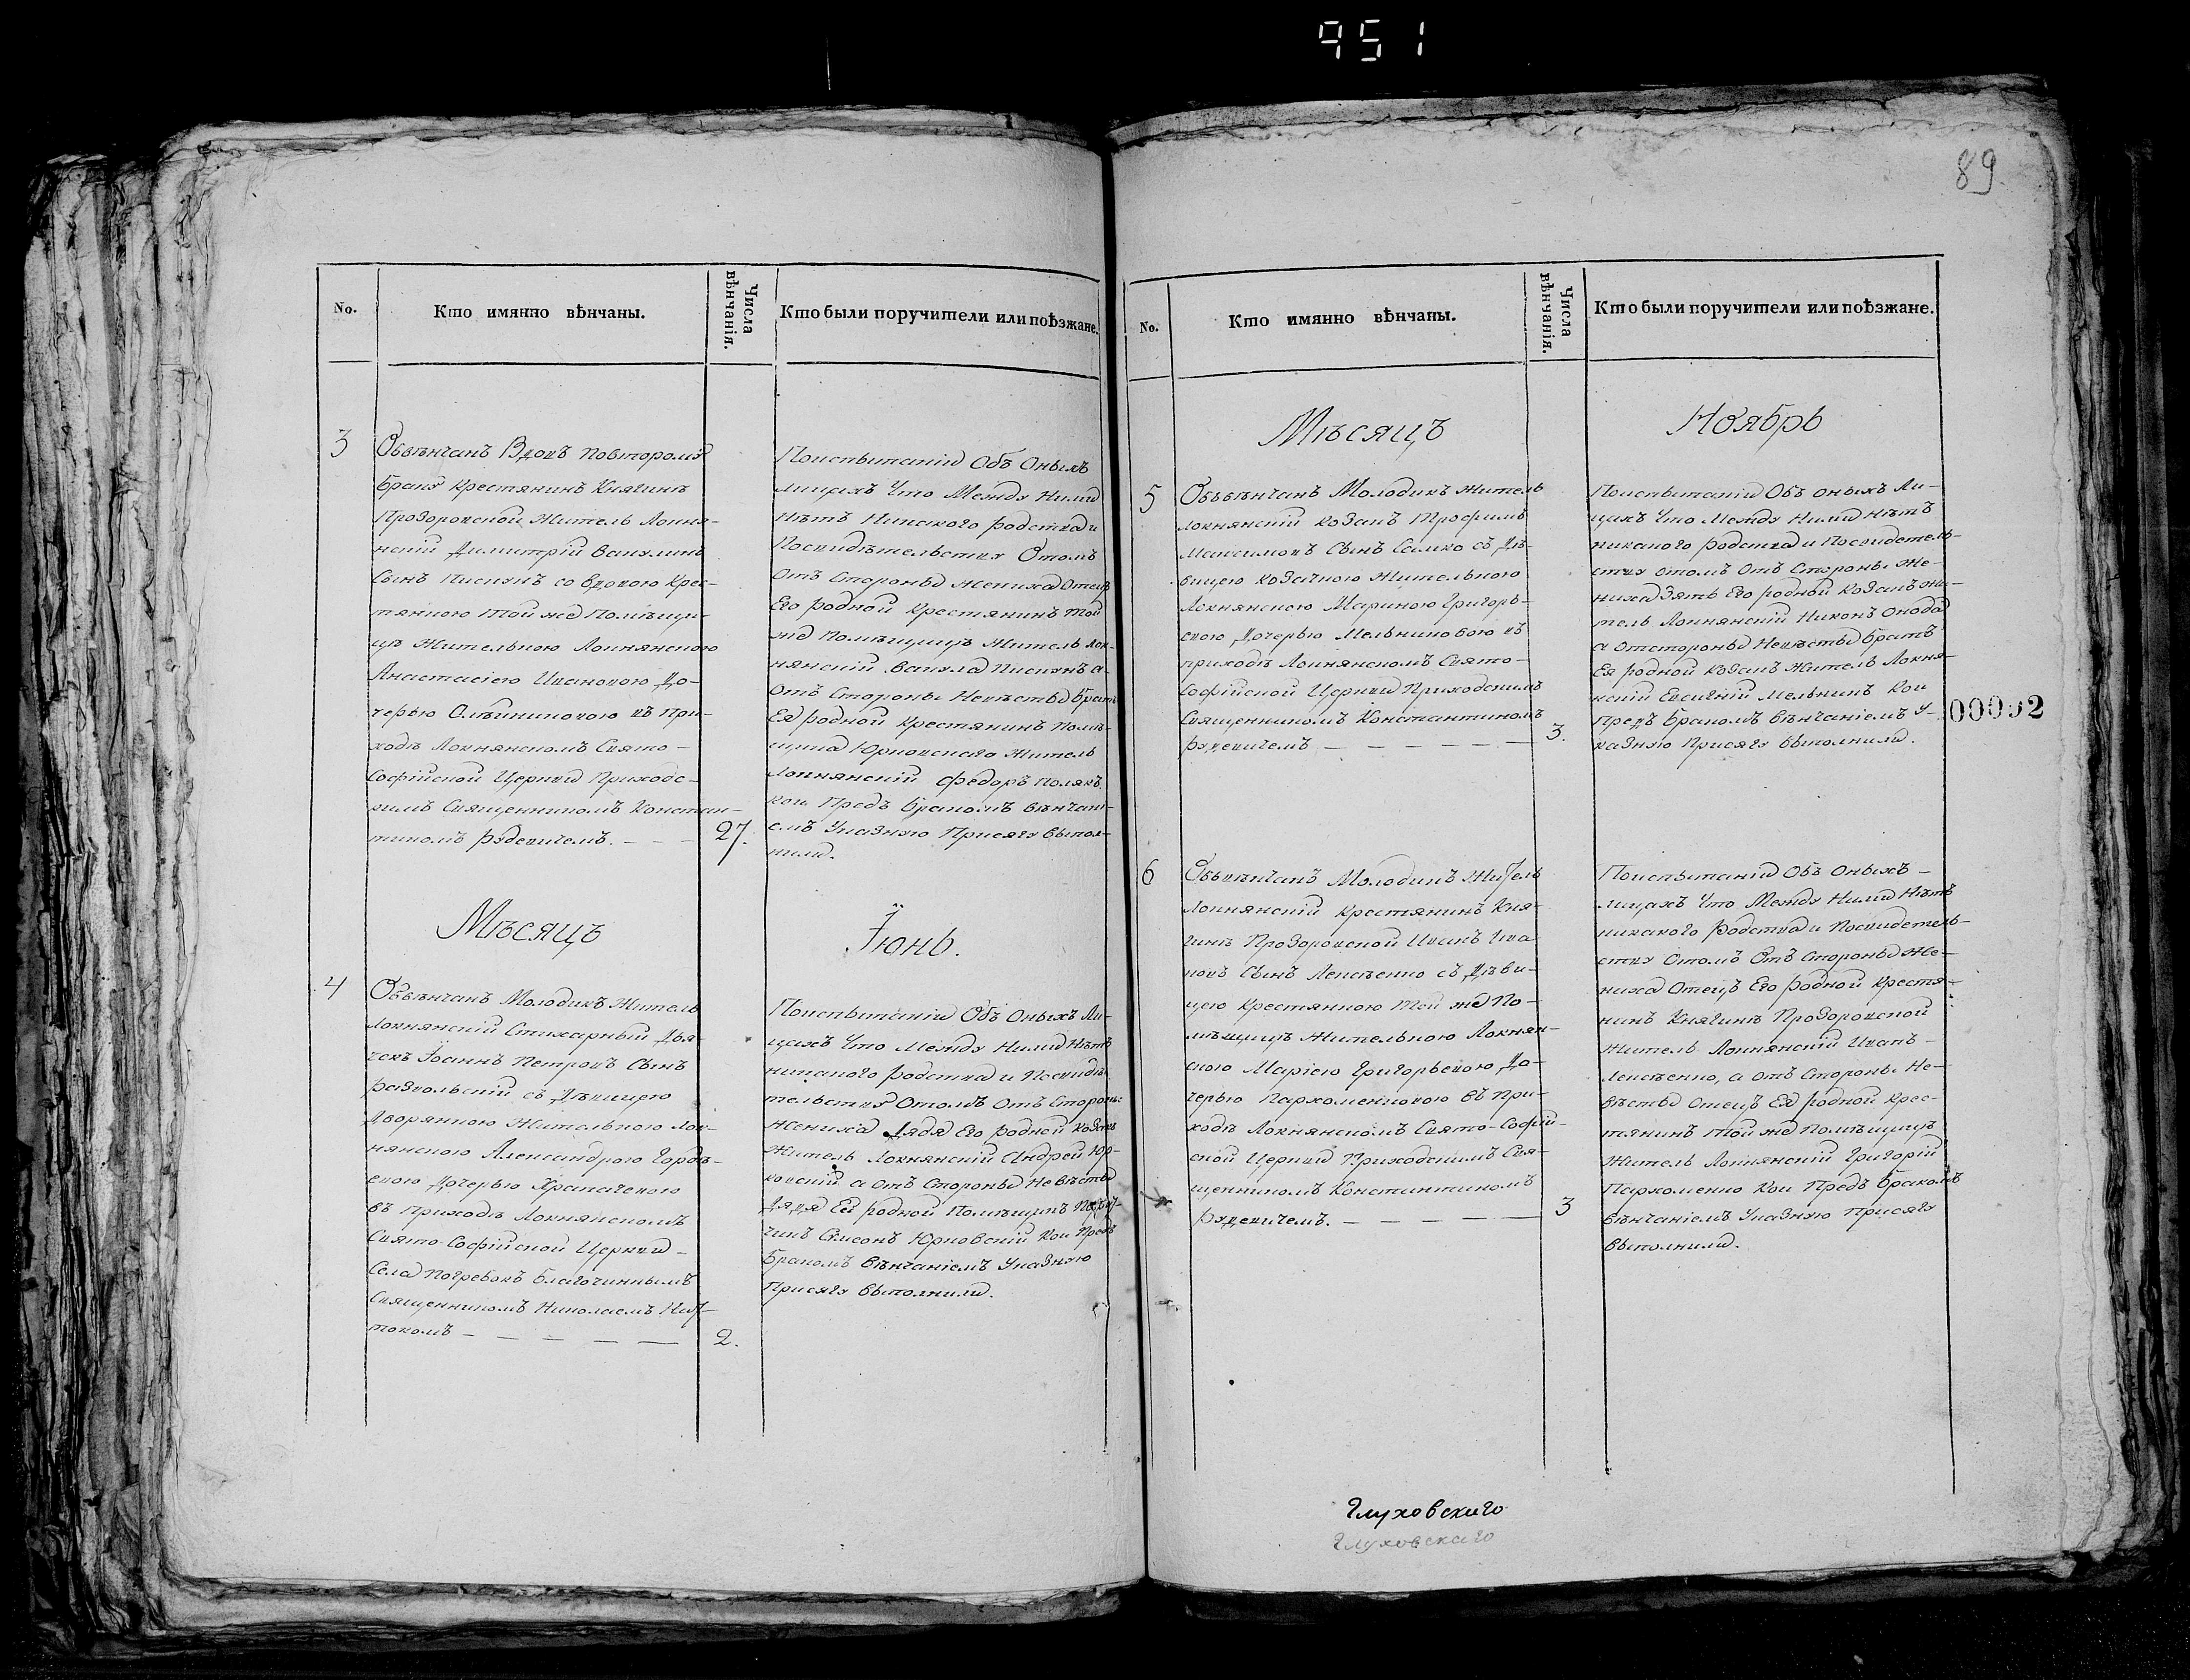 951
89
No.
Кто имянно вѣнчаны.
Числа вѣнчанія.
Кто были поручители или поѣзжане.
3
Обвѣнчанъ Вдовъ повторому
браку крестянинъ Княгинѣ
Прозоровской Житель Локня-
нскій Димитрій Вакулинъ
Сынъ Пискунъ со вдовою крес-
тянкою той же Помѣщи-
цы Жителькою Локнянскою
Анастасіею Ивановою До-
черью Олѣйниковою въ При-
ходѣ Локнянскомъ Свято-
Софійской Церкви Приходс-
кимъ Священникомъ Констан-
тиномъ Рудевичемъ. - - -
27.
Поиспытаніи Объ Оныхъ
лицахъ Что Между Ними
нѣтъ Никакого родства и
Посвидѣтельству Отомъ
Отъ Стороны жениха Отецъ
Его родной Крестянинъ той
же Помѣщицы Житель Лок-
нянскій Вакула Пискунъ а-
Отъ Стороны Невѣсты Братъ
Ея родной Крестянинъ Помѣ-
щика Юрковского Житель
Локнянскій Федоръ Полякъ
кои Предъ Бракомъ вѣнчані-
емъ Указную Присягу выпол-
нили.
Мѣсяцъ
Іюнь.
4
Обвѣнчанъ Молодикъ Житель
Локнянскій Стихарный Дья-
чекъ Іоаннъ Петровъ Сынъ
съ Дѣвицею
Дворянкою Жителькою Лок-
нянскою Александрою Гордѣ-
евою Дочерью Храпачевою
въ Приходѣ Локнянскомъ
Свято-Софійской Церкви-
Села Погребокъ Благочиннымъ
Священникомъ Николаемъ
токомъ - - - - -
2.
Поиспытаніи Объ Оныхъ Ли-
цахъ Что Между Ними Нѣтъ
никакого родства и Посвидѣ-
тельству Отомъ Отъ Стороны
Жениха Дядя Его родной Козакъ
Житель Локнянскій Андрей Юр-
ковскій а отъ Стороны Невѣсты
Дядя Ея родной
Самсонъ Юрковскій Кои Предъ
Бракомъ вѣнчаніемъ Указную
Присягу выполнили.
No.
Кто имянно вѣнчаны.
Числа вѣнчанія.
Кто были поручители или поѣзжане.
Мѣсяцъ
Ноябрь
5
Обвѣнчанъ Молодикъ Житель
Локнянскій козакъ Трофимъ
Максимовъ Сынъ Самко съ Дѣ-
вицею козачкою Жителькою
Локнянскою Мариною Григорь-
евою Дочерью Мельниковою въ
приходѣ Локнянскомъ Свято-
Софійской Церкви Приходскимъ
Священникомъ Константиномъ
Рудевичемъ - - - - - -
3.
Поиспытаніи Объ оныхъ Ли-
цахъ Что Между Ними нѣтъ
никакого родства и Посвидетель-
ству отомъ Отъ Стороны Же-
ниха Зять Его родной Козакъ жи-
тель Локнянскій Никонъ
а отстороны Невѣсты братъ
Ея родной козакъ Житель Локня-
нскій Евсигній Мельникъ Кои
Предъ Бракомъ вѣнчаніемъ У-
казную Присягу выполнили.
00092
6
Обвѣнчанъ Молодикъ Житель
Локнянскій Крестянинъ Кня-
гинѣ Прозоровской Иванъ Ива
новъ Сынъ съ Дѣви-
цею крестянкою той же По-
мѣщицы Жителькою Локнян-
скою Маріею Григорьевою До-
черью Пархоменковою въ При-
ходѣ Локнянскомъ Свято-Софій-
ской Церкви Приходскимъ Свя-
щенникомъ Константиномъ
Рудевичемъ. - - - - -
3
Поиспытаніи Объ Оныхъ-
лицахъ Что Между Ними Нѣтъ
никакого родства и Посвидетель-
ству Отомъ Отъ Стороны Же-
ниха Отецъ Его родной Крестя-
нинъ Княгинѣ Прозоровской
Житель Локнянскій Иванъ-
а отъ Стороны Не-
вѣсты Отецъ Ея родной крес-
тянинъ той же Помѣщицы
Житель Локнянскій Григорій
Пархоменко Кои Предъ Бракомъ
вѣнчаніемъ Указную Присягу
выполнили.
Глуховскаго
Глуховскаго